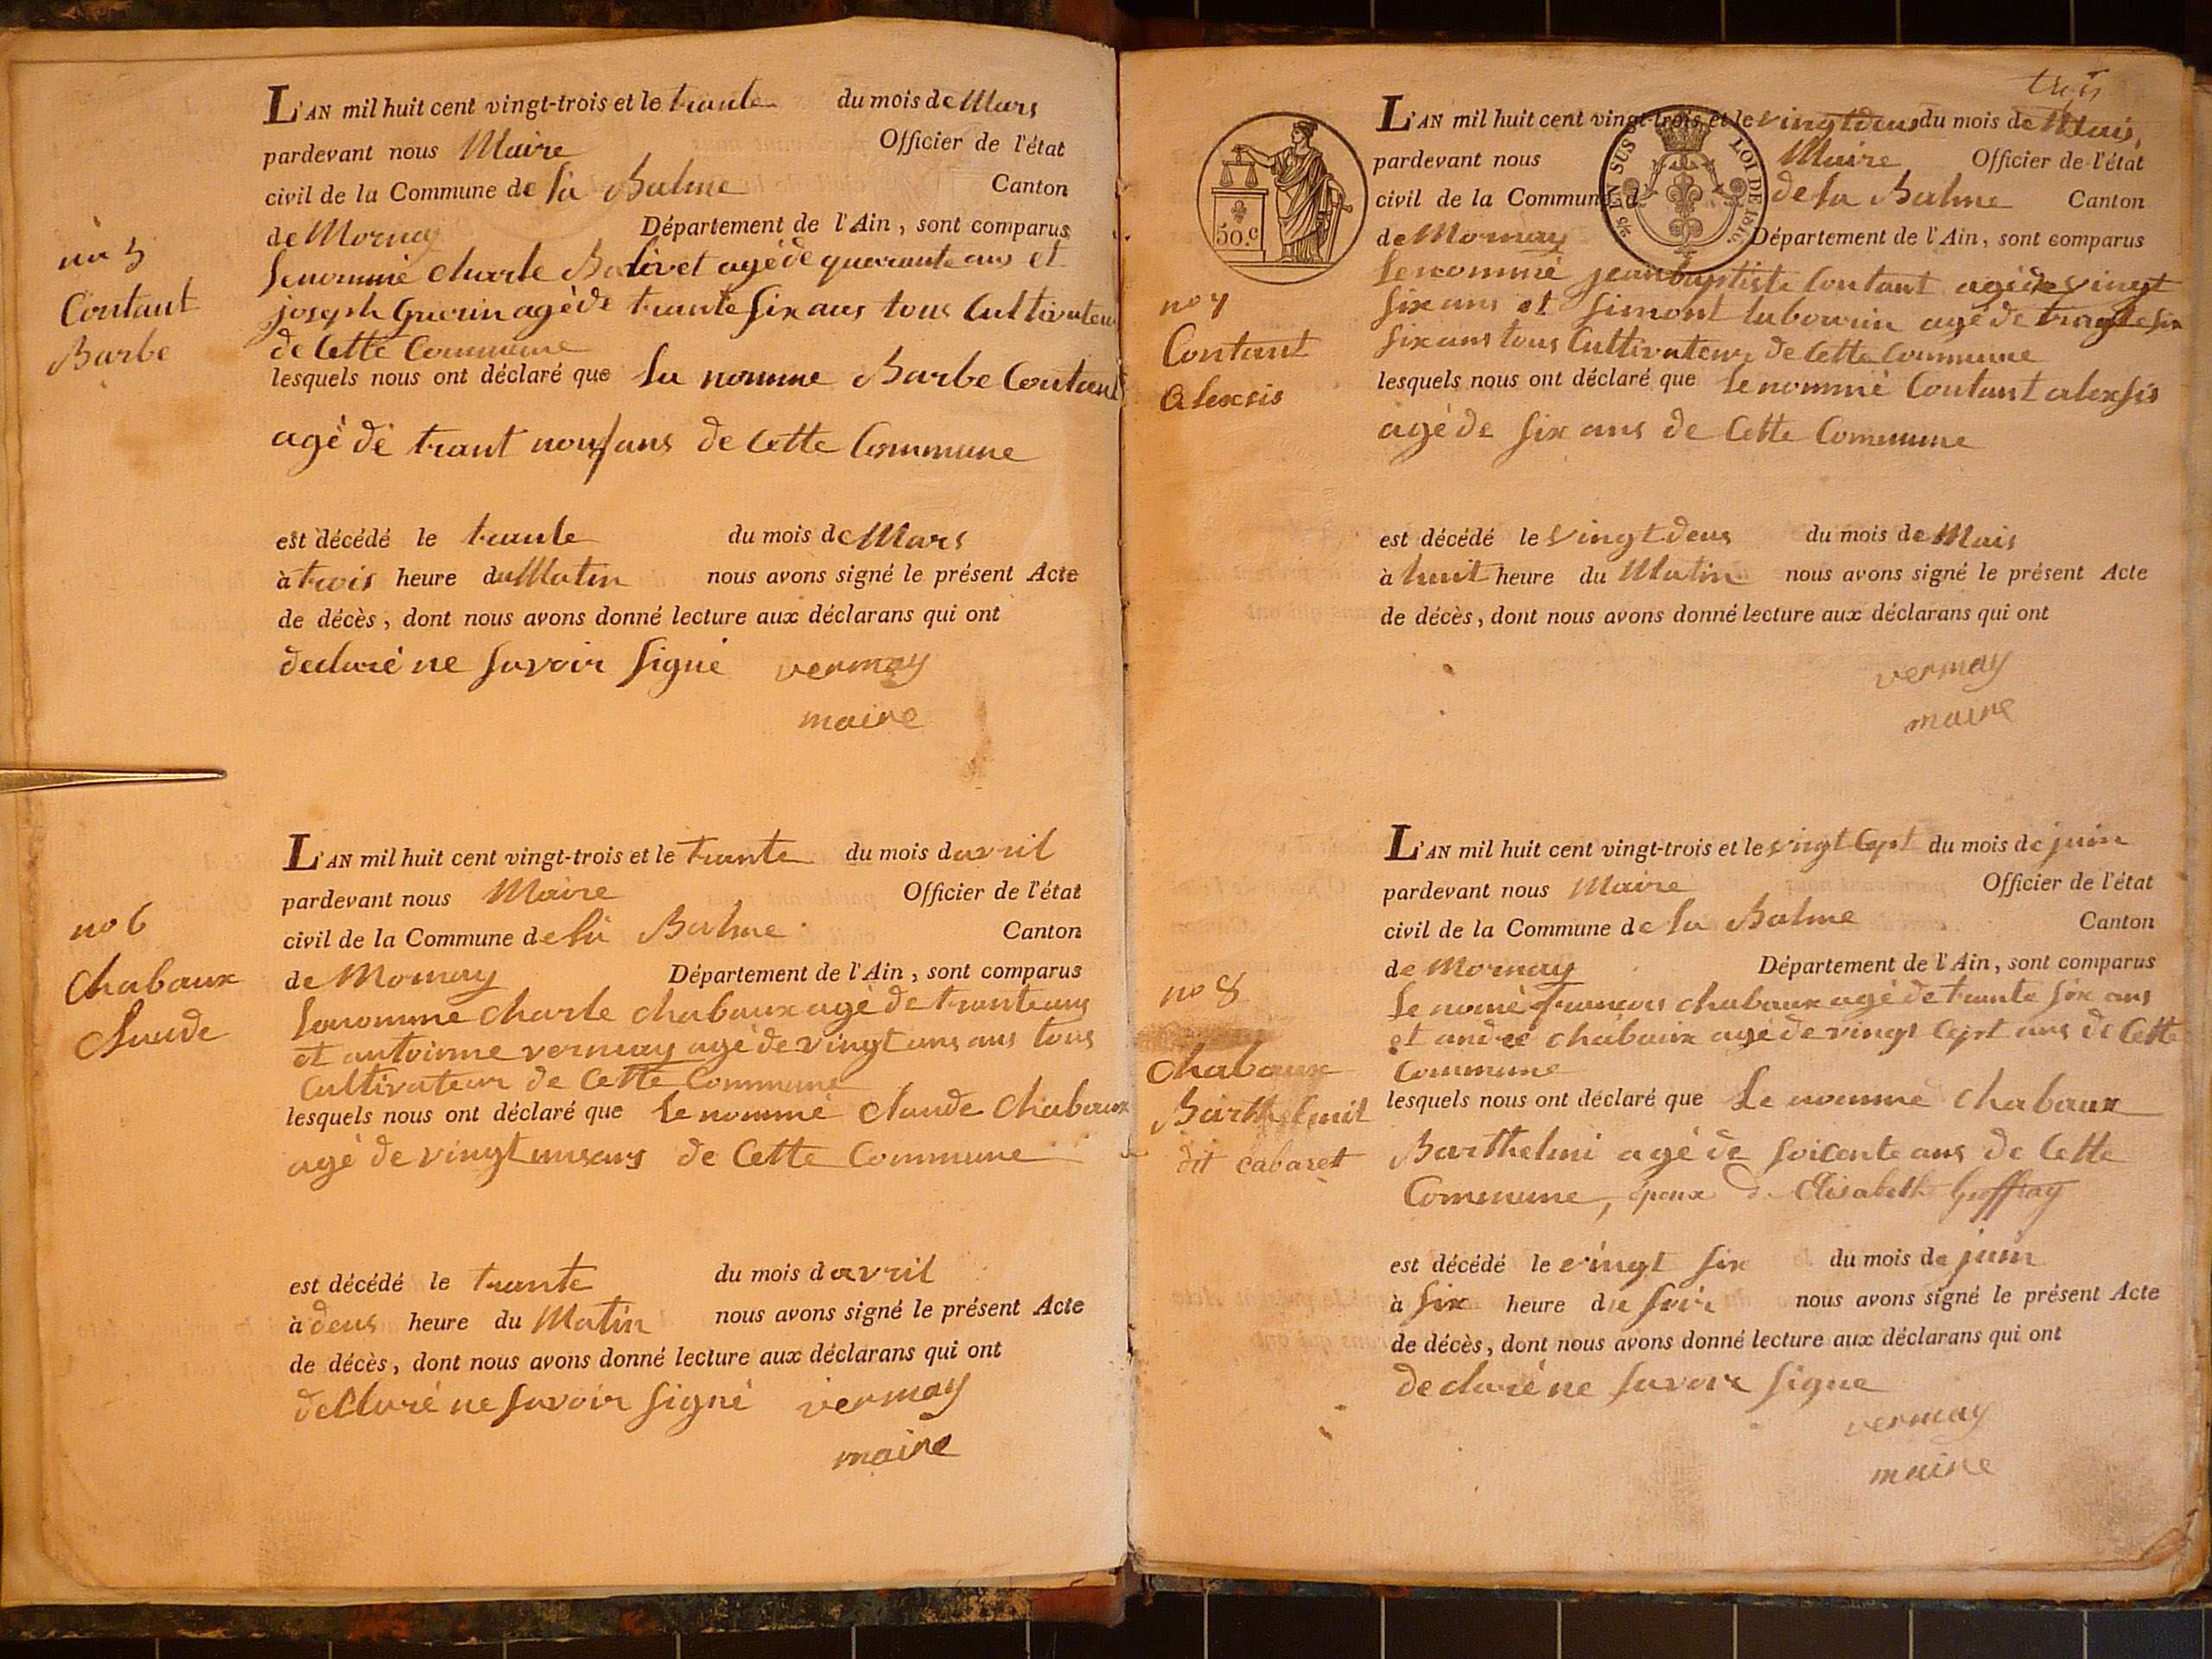 L'AN mil huit cent vingt-trois et le trante du mois de Mars
pardevant nous Maire Officier de l'état
civil de la Commune de la Balme Canton
de Mornay Département de l'Ain, sont comparus
lenommé charle Balivet agé de quarante ans et
joseph Guerin agé de trante six ans tous Cultivateur
de Cette Commune
lesquels nous ont déclaré que la nomme Barbe Contant
agé de trant nouf ans de Cette Commune
est décédé le trante du mois de Mars
à trois heure du Matin nous avons signé le présent Acte
de décès, dont nous avons donné lecture aux déclarans qui ont
declaré ne savoir signé vermay
maire
5
Contant
Barbe
L'AN mil huit cent vingt-trois et le trante du mois davril
pardevant nous Maire Officier de l'état
civil de la Commune de la Balme Canton
de Mornay Département de l'Ain, sont comparus
lenomme charle chabaux agé de trante ans
et antoinne vermay agé de vingt ans ans tous
Cultivateur de Cette Commune
lesquels nous ont déclaré que le nommé claude Chabaux
agé de vingt unsans de Cette Commune
est décédé le trante du mois d avril
à deus heure du Matin nous avons signé le présent Acte
de décès, dont nous avons donné lecture aux déclarans qui ont
declaré ne savoir signé vermay
maire
no 6
Chabaux
Claude
trois
L'AN mil huit cent vingt-trois et le vingtdeus du mois de Mais
pardevant nous Maire Officier de l'état
civil de la Commune d de la Balme Canton
de Mornay Département de l'Ain, sont comparus
lenommé jean baptiste Contant agé de vingt
six ans et simont labourin agé de
six ans tous Cultivateur de Cette Commune
lesquels nous ont déclaré que le nommé Contant alexsis
agé de six ans de Cette Commune
est décédé le vingt deus du mois de Mais
à huit heure du Matin nous avons signé le présent Acte
de décès, dont nous avons donné lecture aux déclarans qui ont
vermay
maire
50.c
EN SUS LOI DE 1816
no 7
Contant
Alexsis
L'AN mil huit cent vingt-trois et le vingt Cept du mois de juin
pardevant nous Maire Officier de l'état
civil de la Commune de la Balme Canton
de Mornay Département de l'Ain, sont comparus
le nomé francois chabaux agé de trante six ans
et andré chabaux agé de vingt Cept ans de Cette
Commune
lesquels nous ont déclaré que Le nomme Chabaux
Barthelmi agé de soicente ans de Cette
Commune, époux d Elisabeth Geoffray
est décédé le vingt six du mois de juin
à six heure du soir nous avons signé le présent Acte
de décès, dont nous avons donné lecture aux déclarans qui ont
declaré ne savoir signe
vermay
maire
no 8
Chabaux
Barthelmit
dit cabarett